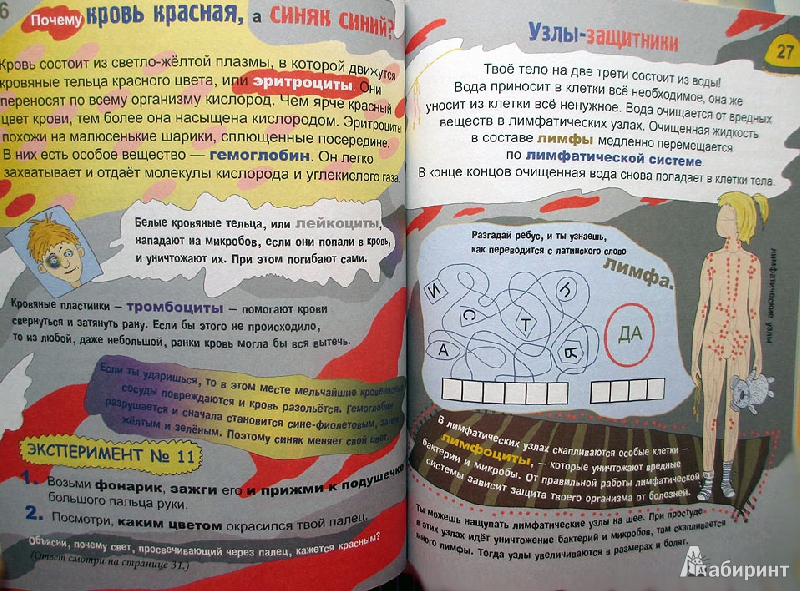 6
Почему кровь красная, а синяк синий?
Кровь состоит из светло-жёлтой плазмы, в которой движутся
кровяные тельца красного цвета, или эритроциты. Они
переносят по всему организму кислород. Чем ярче красный
цвет крови, тем более она насыщена кислородом. Эритроциты
похожи на малюсенькие шарики, сплющенные посередине.
В них есть особое вещество — гемоглобин. Он легко
захватывает и отдаёт молекулы кислорода и углекислого газа.
Белые кровяные тельца, или лейкоциты,
нападают на микробов, если они попали в кровь,
и уничтожают их. При этом погибают сами.
Кровяные пластинки – тромбоциты – помогают крови
свернуться и затянуть рану. Если бы этого не происходило,
то из любой, даже небольшой, ранки кровь могла бы вся вытечь.
Если ты ударишься, то в этом месте мельчайшие кровеносные
сосуды повреждаются и кровь разольётся. Гемоглобин
разрушается и сначала становится сине-фиолетовым, затем
жёлтым и зелёным. Поэтому синяк меняет свой цвет.
ЭКСПЕРИМЕНТ № 11
1. Возьми фонарик, зажги его и прижми к подушечке
большого пальца руки.
2. Посмотри, каким цветом окрасился твой палец.
Объясни, почему свет, просвечивающий через палец, кажется красным?
(Ответ смотри на странице 31.)
Узлы-защитники
27
Твоё тело на две трети состоит из воды!
Вода приносит в клетки всё необходимое, она же
уносит из клетки всё ненужное. Вода очищается от вредных
веществ в лимфатических узлах. Очищенная жидкость
в составе лимфы медленно перемещается
по лимфатической системе.
В конце концов очищенная вода снова попадает в клетки тела.
Разгадай ребус, и ты узнаешь,
как переводится с латинского слово
лимфа.
И
У
С
Т
А
Я
ДА
лимфатические узлы
В лимфатических узлах скапливаются особые клетки –
лимфоциты, – которые уничтожают вредные
бактерии и микробы. От правильной работы лимфатической
системы зависит защита твоего организма от болезней.
Ты можешь нащупать лимфатические узлы на шее. При простуде
в этих узлах идёт уничтожение бактерий и микробов, там скапливается
много лимфы. Тогда узлы увеличиваются в размерах и болят.
Лабиринт